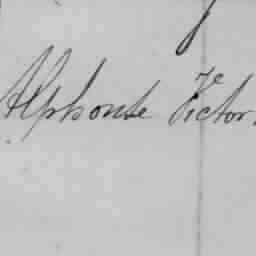 Alphonse Victor.